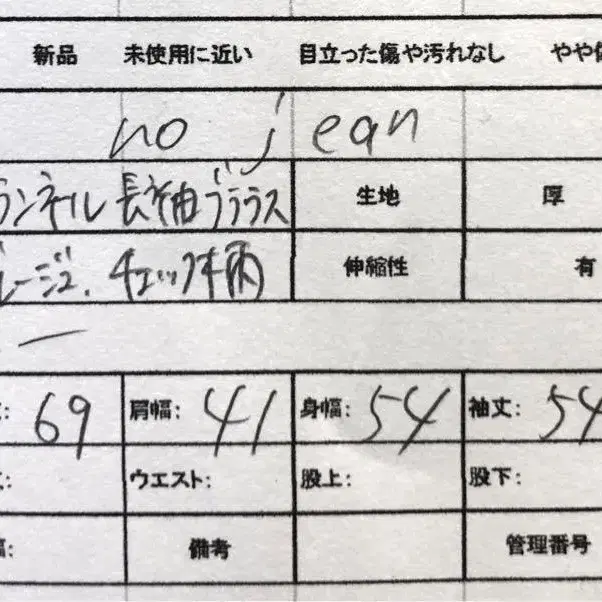 新品 未使用に近い 目立った傷や汚れなし やや傷
no jean
ランネル 長袖ブラウス 生地 厚
ージュ、チェック柄 伸縮性 有
ー
: 69 肩幅: 41 身幅: 54 袖丈: 54
: ウエスト: 股上: 股下:
: 備考 管理番号